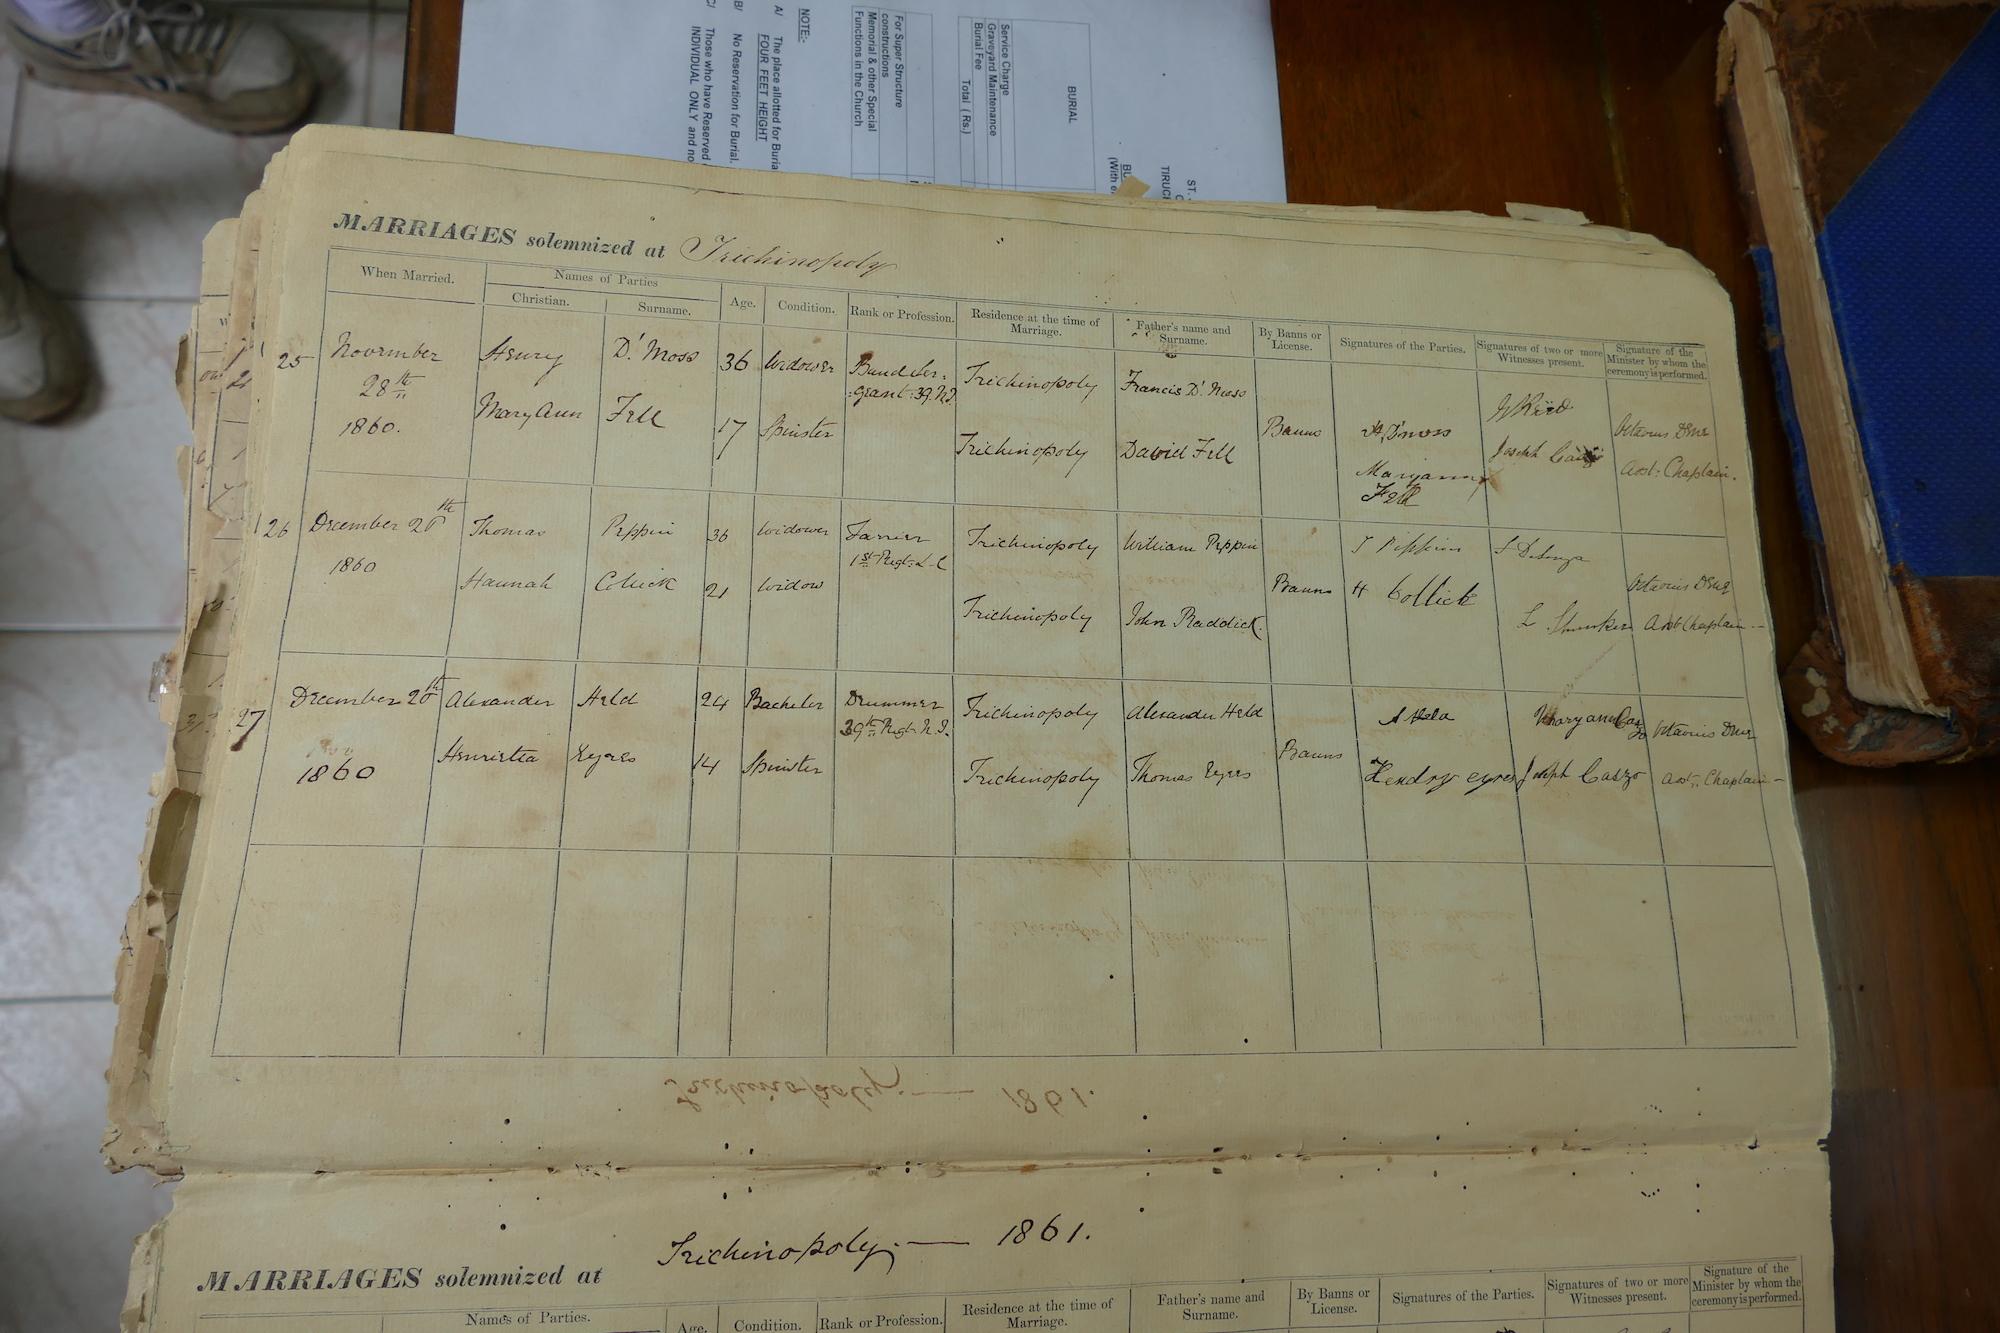 BURIAL
Service Charge
Graveyard Maintenance
Burial Fee
Total (Rs.)
For Super Structure
constructions
Memorial & other Special
Functions in the Church
NOTE:-
A/ The place allotted for Buria
FOUR FEET HEIGHT
B/ No Reservation for Burial.
C/ Those who have Reserved
INDIVIDUAL ONLY and no
ST.
TIRUCH
(With e
MARRIAGES solemnized at Trichinopoly
When Married.
Names of Parties
Christian.
Surname.
Age.
Condition.
Rank or Profession.
Residence at the time of
Marriage.
Father's name and
Surname.
By Banns or
License.
Signatures of the Parties.
Signatures of two or more
Witnesses present.
Signature of the
Minister by whom the
ceremony is performed.
25 November
28th
1860.
Henry D'Moss 36 Widower
Band Ser:
:geant: 39. N.I.
Trichinopoly Francis D'Moss
Mary Ann Fell 17 Spinster
Trichinopoly David Fell
Banns
H. D'moss
Maryann
Fell
Joseph
Octavius
Asst: Chaplain.
26 December 26th
1860
Thomas Peppin 36 Widower
Farrier
1st Regt: L-C
Trichinopoly William Peppin
Hannah Collick 21 Widow
Trichinopoly John Raddick.
Banns
T Pippin
H Collick
L
Octavius
Asst Chaplain
27 December 26th
1860
Alexander Held 24 Bachelor
Drummer
39th Regt. N.I.
Trichinopoly Alexander Held
Henrietta Eyres 14 Spinster
Trichinopoly Thomas Eyres
Banns
A Held
Hendry eyres
Maryann
Joseph Caszo
Octavius
Asst: Chaplain
Trichinopoly. — 1861.
MARRIAGES solemnized at
Names of Parties.
Age.
Condition.
Rank or Profession.
Residence at the time of
Marriage.
Father's name and
Surname.
By Banns or
License.
Signatures of the Parties.
Signatures of two or more
Witnesses present.
Signature of the
Minister by whom the
ceremony is performed.